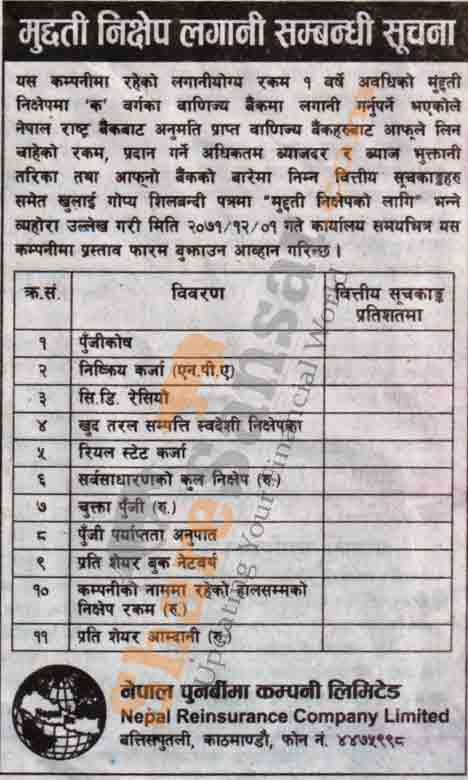 मुद्दती निक्षेप लगानी सम्बन्धी सूचना
यस कम्पनीमा रहेको लगानीयोग्य रकम १ वर्षे अवधिको मुद्दती
निक्षेपमा 'क' वर्गका वाणिज्य बैंकमा लगानी गर्नुपर्ने भएकोले
नेपाल राष्ट्र बैंकबाट अनुमति प्राप्त वाणिज्य बैंकहरुबाट आफूले लिन
चाहेको रकम, प्रदान गर्ने अधिकतम ब्याजदर र ब्याज भुक्तानी
तरिका तथा आफ्नो बैंकको बारेमा निम्न वित्तीय सूचकाङ्कहरु
समेत खुलाई गोप्य शिलबन्दी पत्रमा "मुद्दती निक्षेपको लागि" भन्ने
व्यहोरा उल्लेख गरी मिति २०७१/१२/०१ गते कार्यालय समयभित्र यस
कम्पनीमा प्रस्ताव फारम बुझाउन आव्हान गरिन्छ ।
क्र.सं. विवरण वित्तीय सूचकाङ्क
प्रतिशतमा
१ पुँजीकोष
२ निष्क्रिय कर्जा (एन.पी.ए)
३ सि.डि. रेसियो
४ खुद तरल सम्पत्ति स्वदेशी निक्षेपका
५ रियल स्टेट कर्जा
६ सर्वसाधारणको कुल निक्षेप (रु.)
७ चुक्ता पुँजी (रु.)
८ पुँजी पर्याप्तता अनुपात
९ प्रति शेयर बुक नेटवर्थ
१० कम्पनीको नाममा रहेको हालसम्मको
निक्षेप रकम (रु.)
११ प्रति शेयर आम्दानी (रु.
नेपाल पुनर्बीमा कम्पनी लिमिटेड
Nepal Reinsurance Company Limited
बत्तिसपुतली, काठमाण्डौ, फोन नं. ४४७५९९८
sharesansar.com
Updating Your Financial World